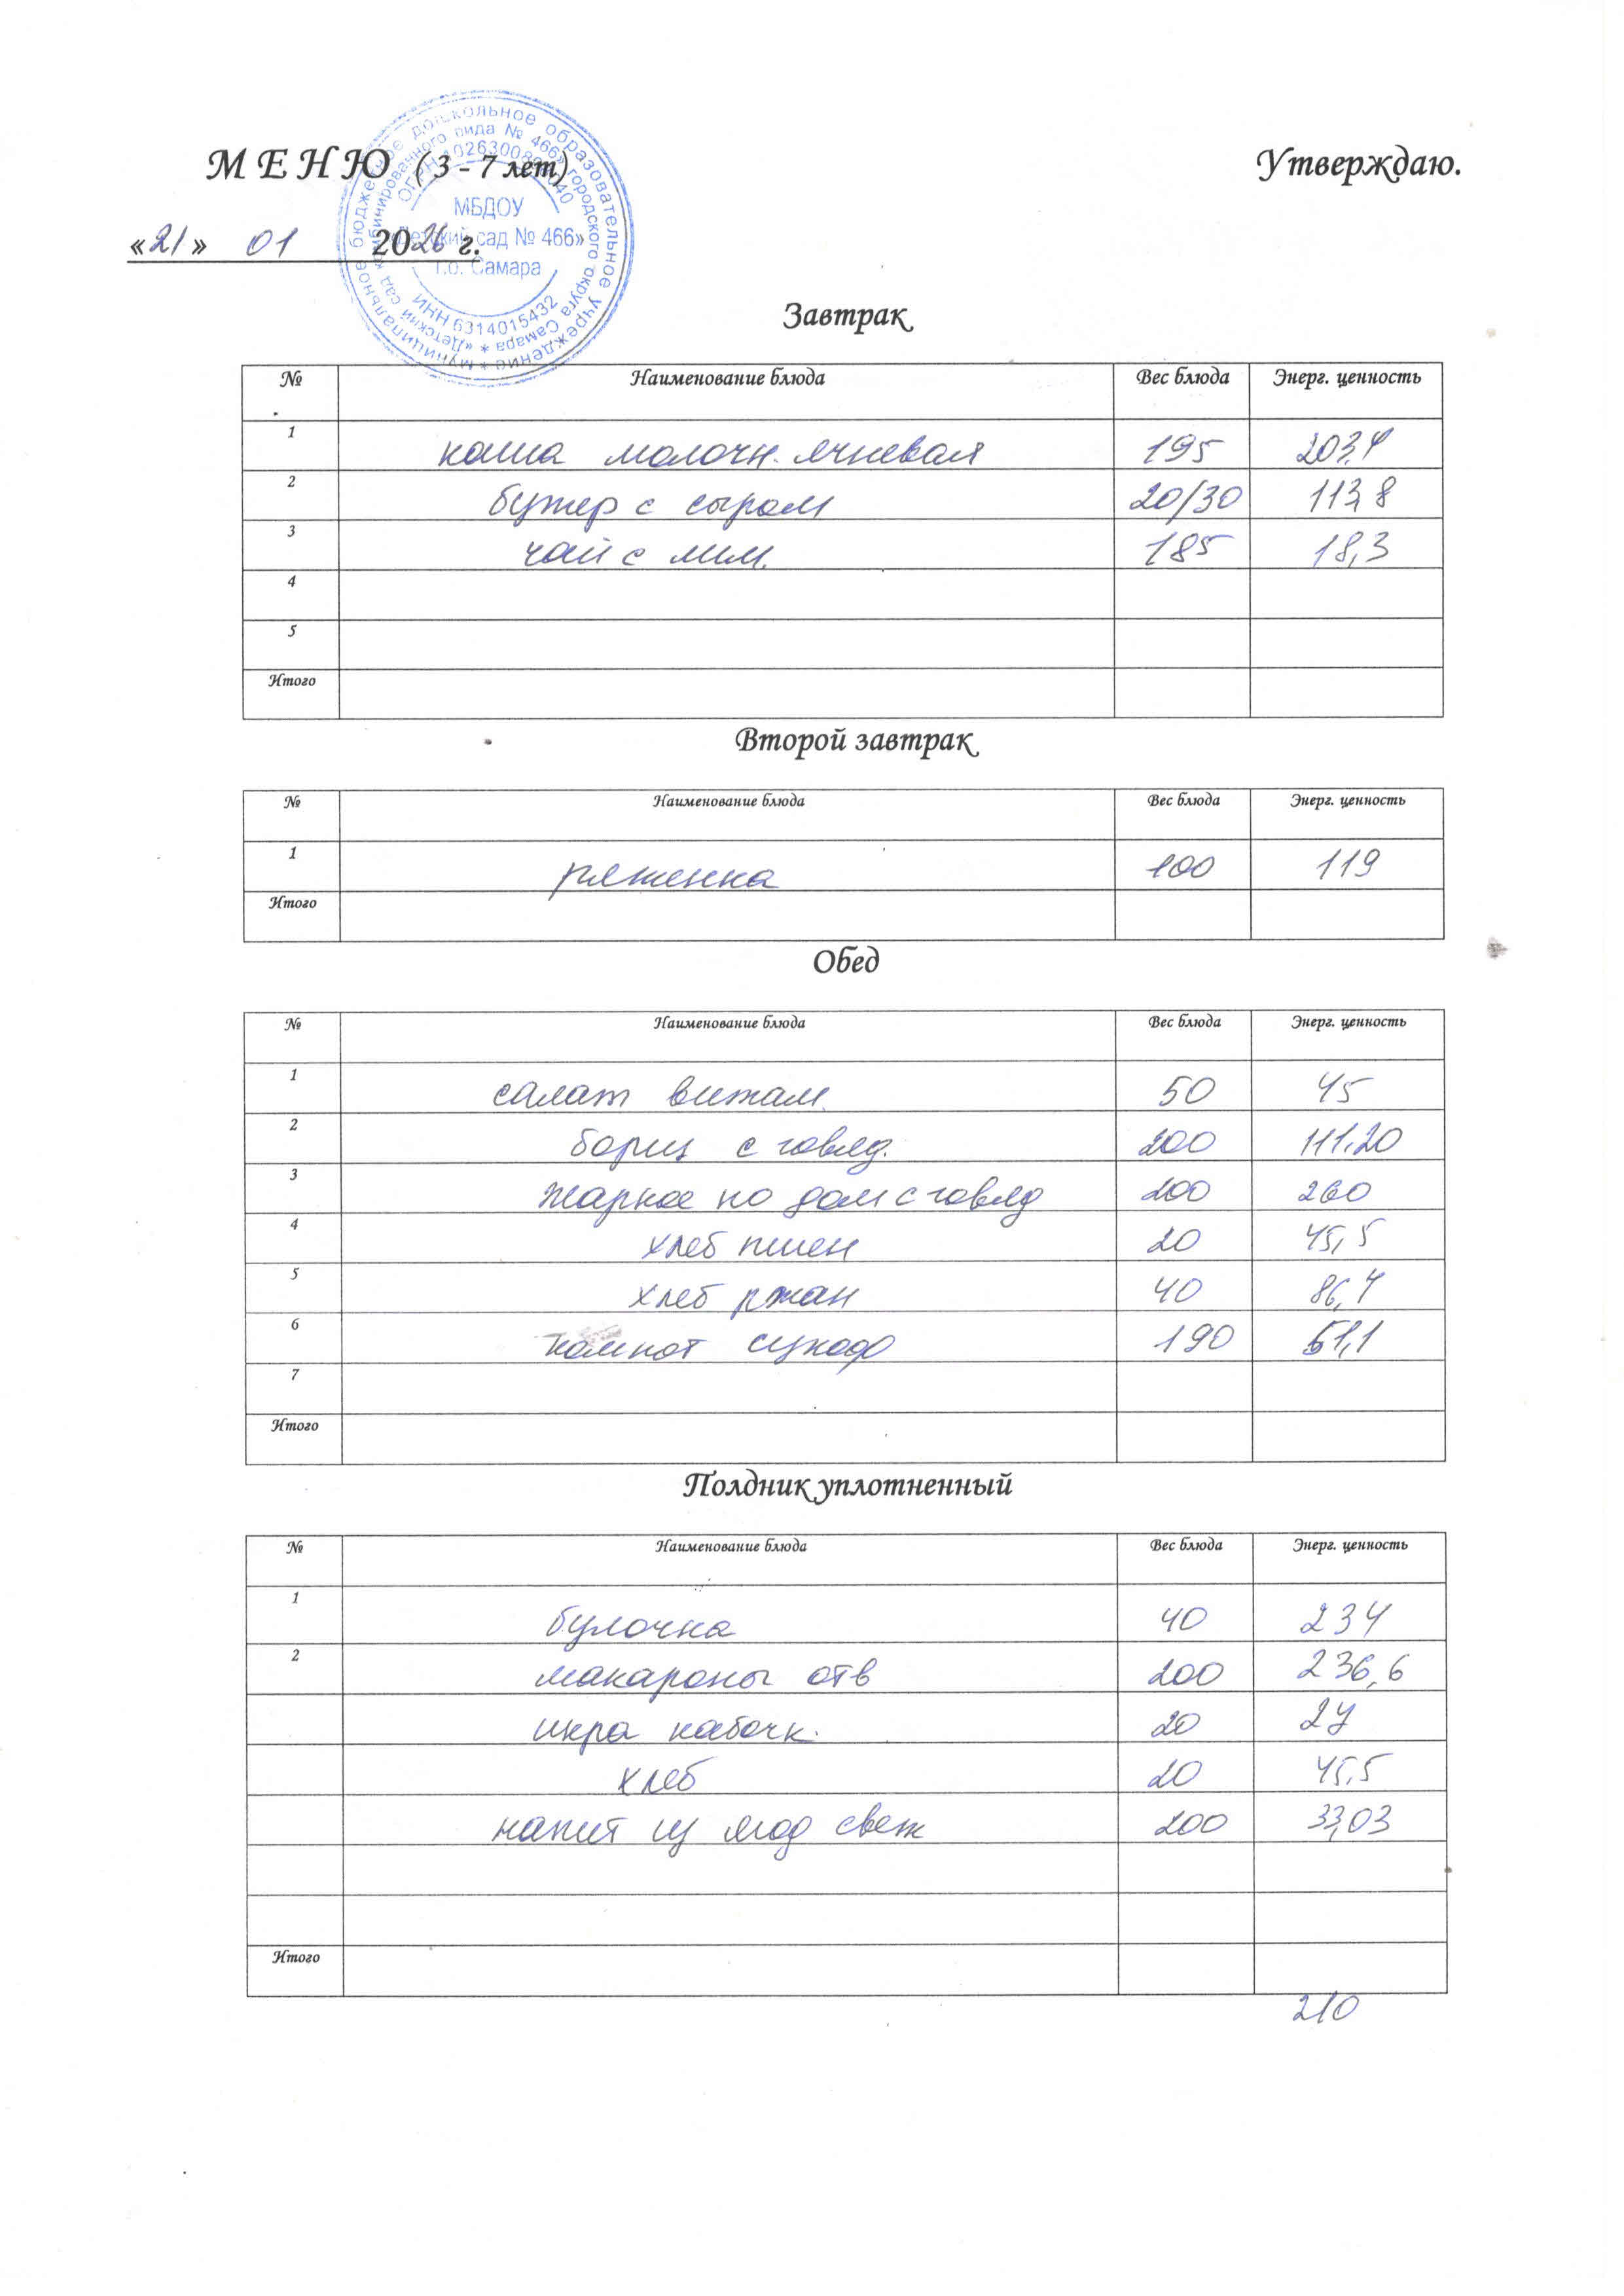 М Е Н Ю (3 - 7 лет)
Утверждаю.
«21» 01 2026 г.
муниципальное бюджетное дошкольное образовательное учреждение *
«Детский сад комбинированного вида № 466» городского округа Самара *
МБДОУ
«Детский сад № 466»
г.о. Самара
ИНН 6314015432
Завтрак
№ Наименование блюда Вес блюда Энерг. ценность
1 каша молочн. ячневая 195 203,4
2 бутер с сыром 20/30 113,8
3 чай с лим. 185 18,3
4
5
Итого
Второй завтрак
№ Наименование блюда Вес блюда Энерг. ценность
1 ряженка 100 119
Итого
Обед
№ Наименование блюда Вес блюда Энерг. ценность
1 салат витам. 50 45
2 борщ с говяд. 200 111.20
3 жаркое по дом с говяд 200 260
4 хлеб пшен 20 45,5
5 хлеб ржан 40 86,4
6 компот сухоф 190 51,1
7
Итого
Полдник уплотненный
№ Наименование блюда Вес блюда Энерг. ценность
1 булочка 40 234
2 макароны отв 200 236,6
икра кабачк. 20
хлеб 20 45,5
напит из ягод свеж 200 33,03
Итого
210